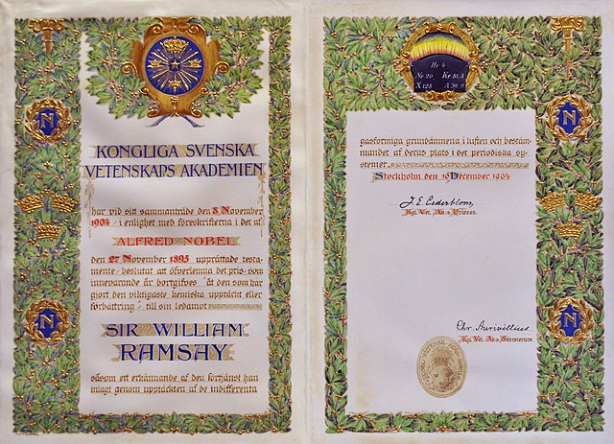 KONGLIGA SVENSKA
VETENSKAPS AKADEMIEN
har vid sitt sammanträde den 8 November
1904 i enlighet med föreskrifterna i det af
ALFRED NOBEL
den 27 November 1895 upprättade testa-
mente beslutat att öfverlemna det pris som
innevarande år bortgifves åt den som har
gjort den viktigaste kemiska upptäckt eller
förbättring till sin ledamot
SIR WILLIAM
RAMSAY
såsom ett erkännande af den förtjänst han
inlagt genom upptäckten af de indifferenta
He 4
Ne 20 Kr 81,8
X 128 A 39,9
gasformiga grundämnena i luften och bestäm-
mandet af deras plats i det periodiska sy-
stemet
Stockholm den 10 December 1904
J. E. Cederblom,
Kgl. Vet. Ak:s Præses.
Chr. Aurivillius
Kgl. Vet. Ak:s Sekreterare.
N
N
N
N